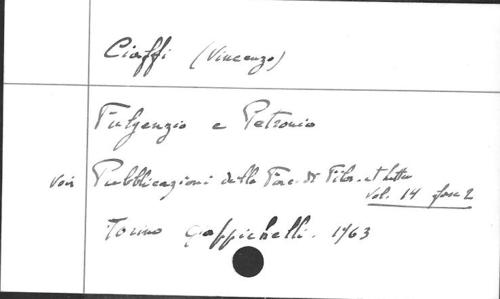 Ciaffi (Vincenzo)
Fulgenzio e Petronio
voir Pubblicazioni della Fac. di Filos. et lettere
vol. 14 fasc 2
Torino Gappichelli. 1963